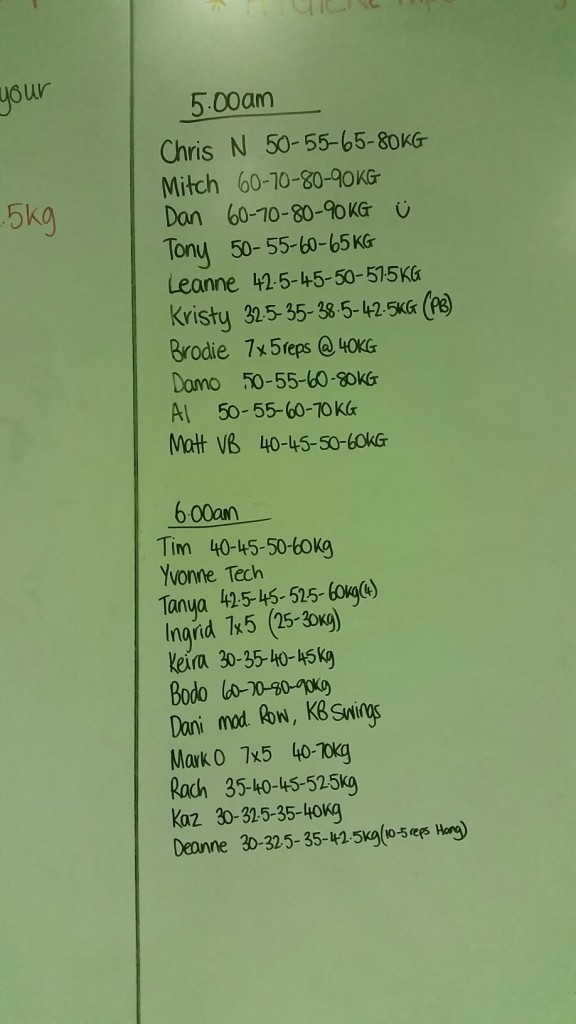 your
.5kg
5.00am
Chris N 50-55-65-80KG
Mitch 60-70-80-90KG
Dan 60-70-80-90KG
Tony 50-55-60-65KG
Leanne 42.5-45-50-57.5KG
Kristy 32.5-35-38.5-42.5KG (PB)
Brodie 7x5reps @ 40KG
Damo 50-55-60-80KG
Al 50-55-60-70KG
Matt VB 40-45-50-60KG
6.00am
Tim 40-45-50-60kg
Yvonne Tech
Tanya 42.5-45-52.5-60kg(4)
Ingrid 7x5 (25-30kg)
Keira 30-35-40-45kg
Bodo 60-70-80-90kg
Dani mod. Row, KB Swings
Mark O 7x5 40-70kg
Rach 35-40-45-52.5kg
Kaz 30-32.5-35-40kg
Deanne 30-32.5-35-42.5kg(10-5reps Hang)